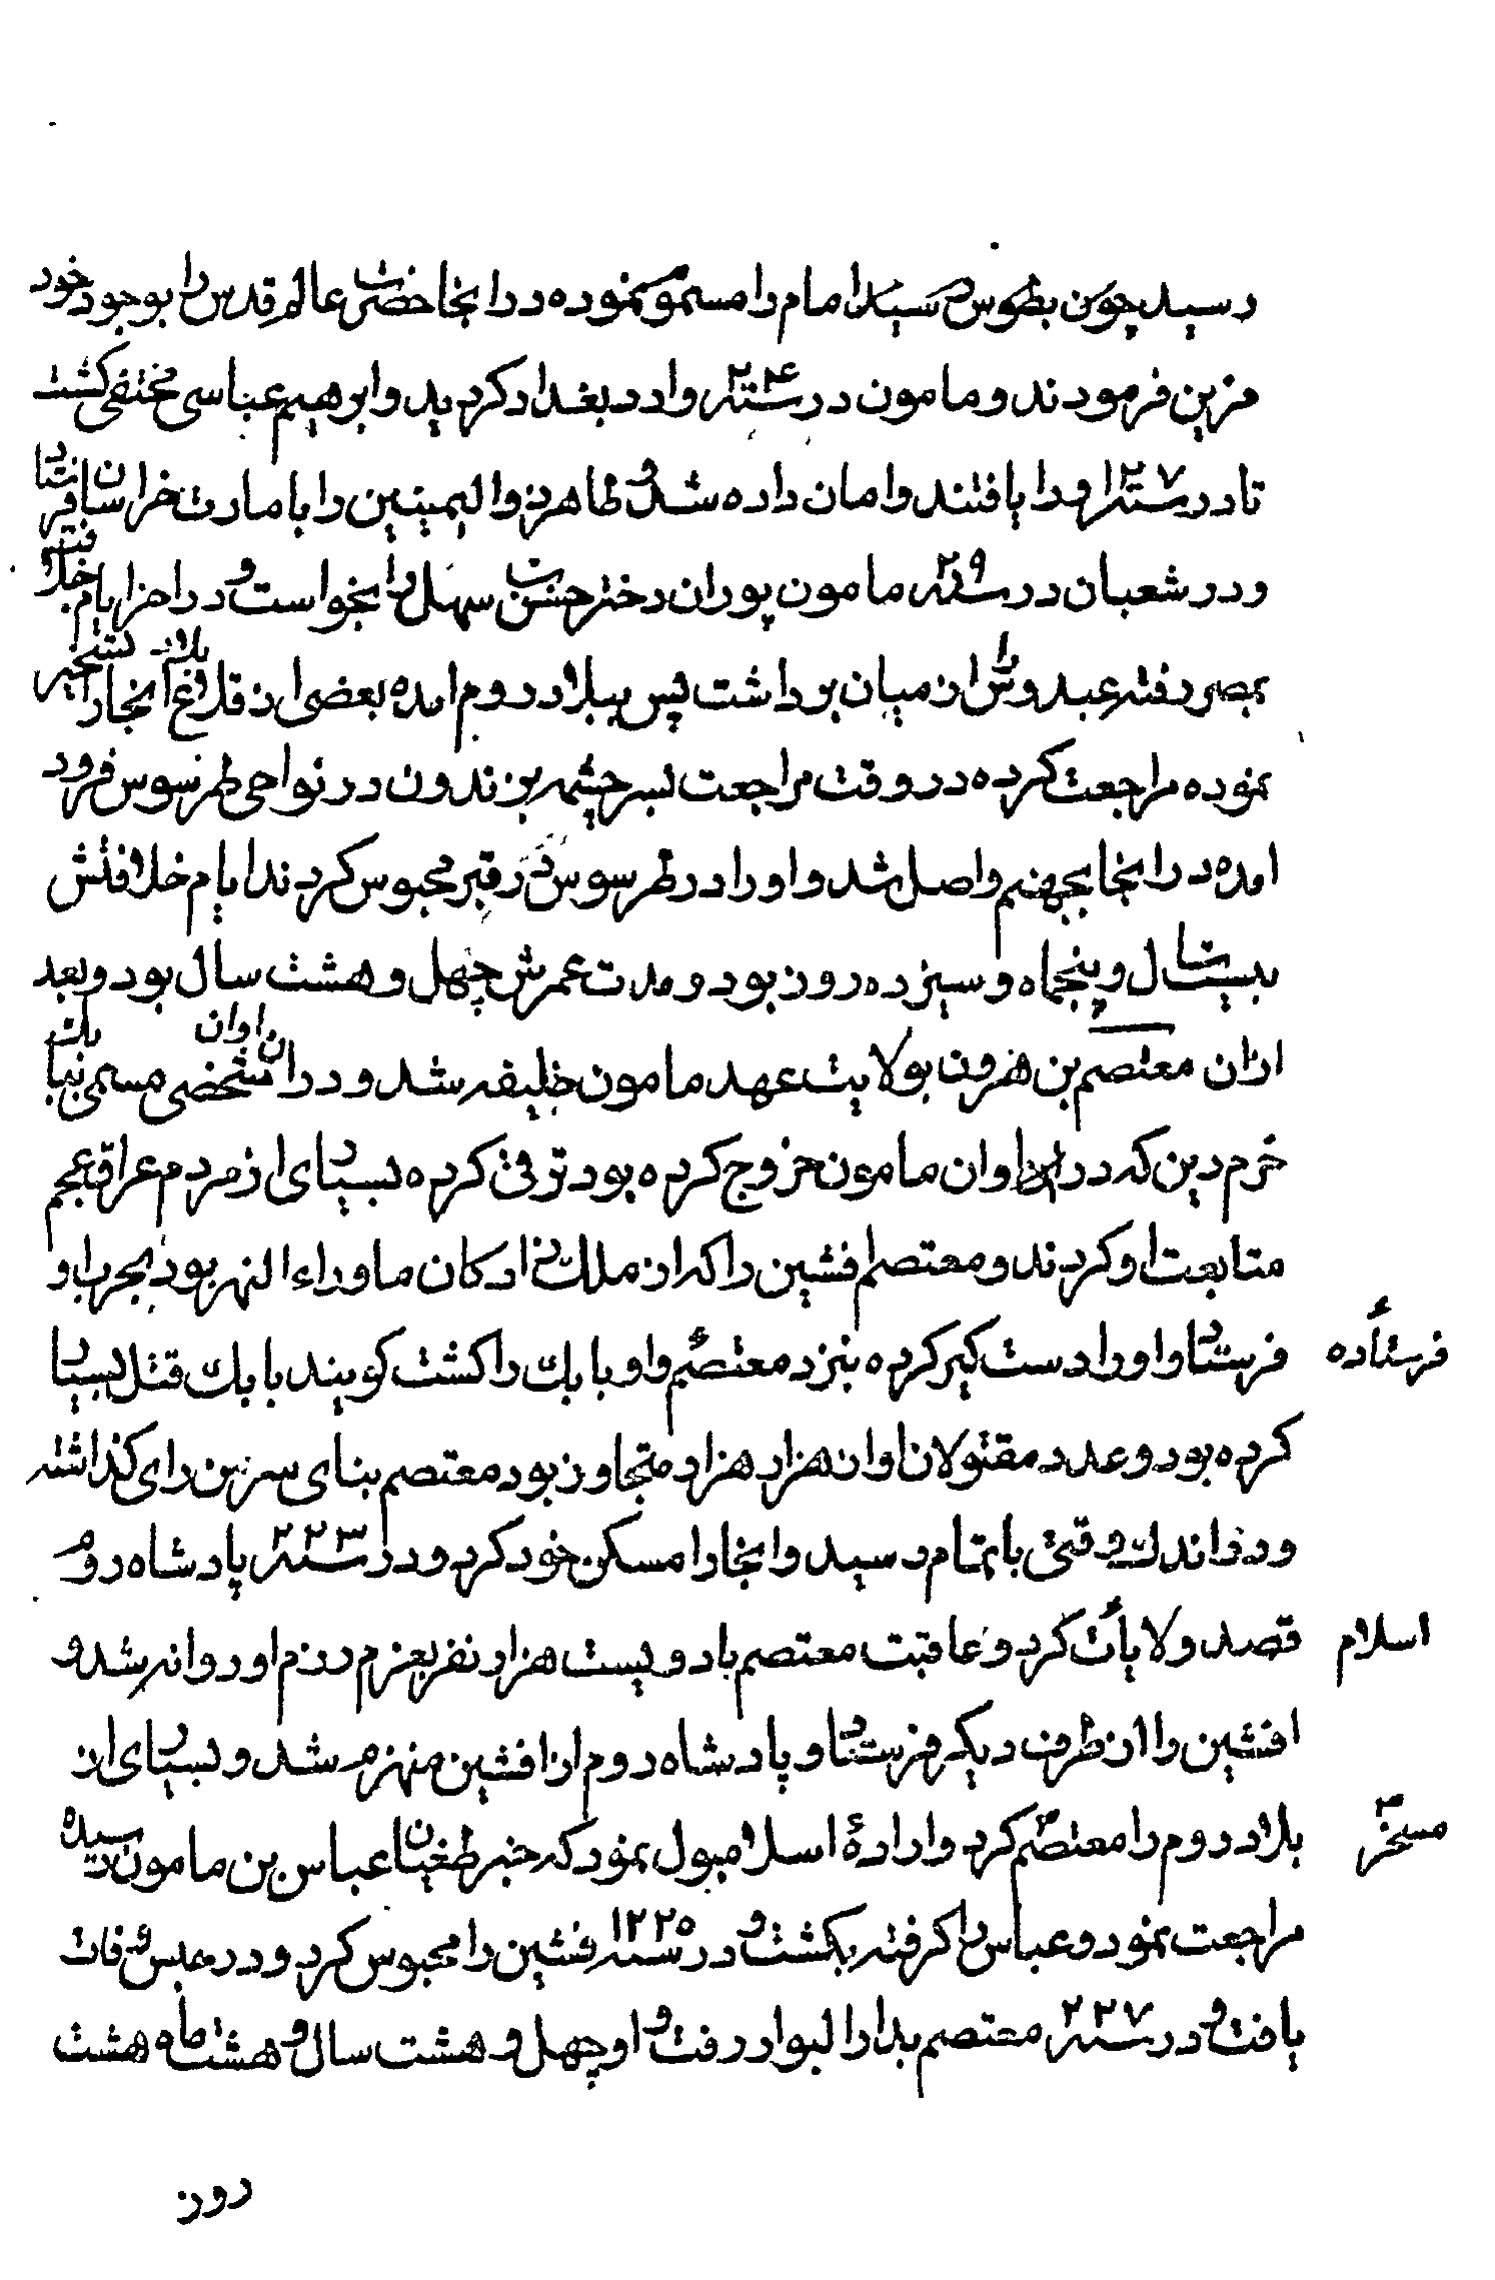 رسید چون بطوس رسید امام را مسموم نموده در انجا حضرت عالم قدس را بوجود خود
مزین فرمودند و مامون در سنه ۲۰۴ وارد بغداد کردید و ابرهیم عباسی مختفی کشت
تا در سنه او را یافتند و امان داده شد و طاهر ذو الیمینین را بامارت خراسان فرستاد
و در شعبان در سنه مامون پوران دختر حسن بن سهل را بخواست و در اخر ایام خلافتش
بمصر رفته عبدوس را از میان برداشت پس ببلاد روم امده بعضی از قلاع بلاد انجا را تسخیر
نموده مراجعت کرده در وقت مراجعت بسر چشمه بزندون در نواحی طرسوس فرود
امده در انجا بجهنم واصل شد و او را در طرسوس در قبر محبوس کردند ایام خلافتش
بیست سال و پنجماه و سیزده روز بود و مدت عمرش چهل و هشت سال بود و بعد
ازان معتصم بن هرون بولایت عهد مامون خلیفه شد و در ان اوان شخصی مسمی ببابک
خرم دین که در اوان مامون خروج کرده بود ترقی کرده بسیاری از مردم عراق عجم
متابعت او کردند و معتصم افشین را که از ملک زادکان ماوراء النهر بود بحرب او
فرستاد و او را دست کیر کرده بنزد معتصم فرستاده و او بابک را کشت کویند بابک قتل بسیار
کرده بود و عدد مقتولان او از هزار هزار متجاوز بود معتصم بنای سر من رای کذاشته
و در اندک وقتی باتمام رسید و انجا را مسکن خود کرد و در سنه ۲۲۳ پادشاه روم
قصد ولایات اسلام کرد و عاقبت معتصم با دویست هزار نفر بعزم رزم او روانه شد و
افشین را از طرف دیکر فرستاد و پادشاه روم از افشین منهزم شد و بسیاری از
بلاد روم را معتصم مسخر کرد و ارادهٔ اسلامبول نمود که خبر طغیان عباس بن مامون رسیده
مراجعت نمود و عباس را کرفته بکشت و در سنه ۲۲۵ افشین را محبوس کرد و در حبس وفات
یافت و در سنه ۲۲۷ معتصم بدار البوار رفت و او چهل و هشت سال و هشت ماه هشت
روز